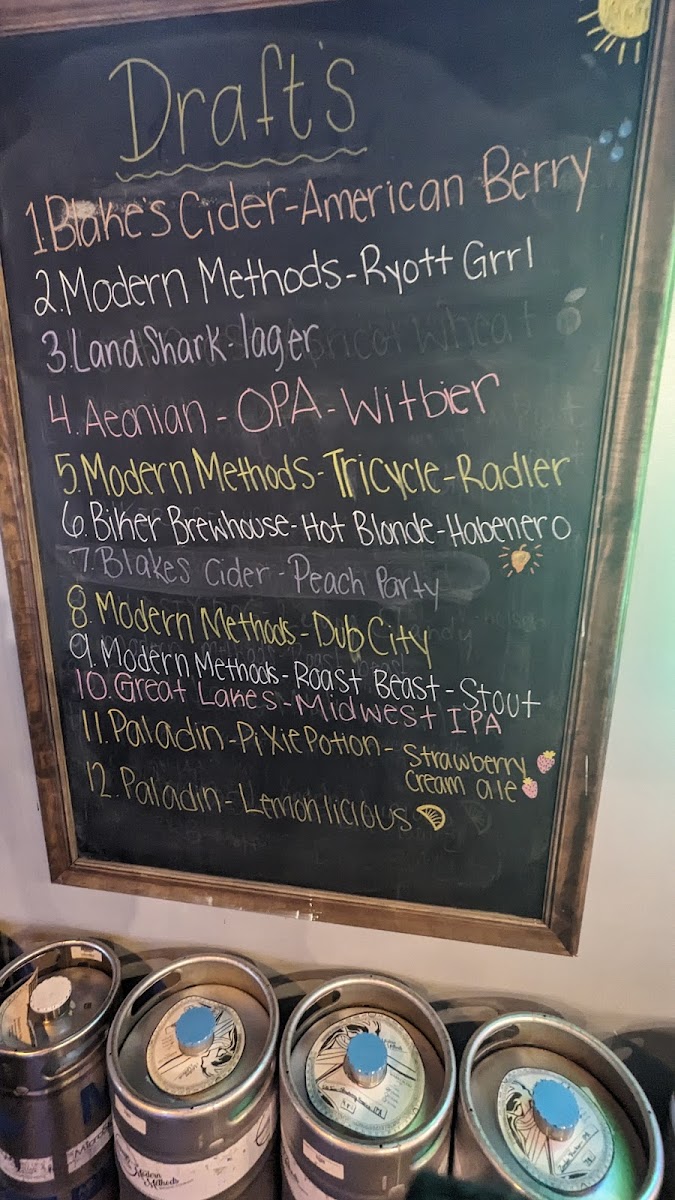 Draft's
1. Blake's Cider-American Berry
2. Modern Methods-Ryott Grrl
3. Land Shark-lager
4. Aeonian-OPA-Witbier
5. Modern Methods-Tricycle-Radler
6. Biker Brewhouse-Hot Blonde-Habenero
7. Blakes Cider-Peach Party
8. Modern Methods-Dub City
9. Modern Methods-Roast Beast-Stout
10. Great Lakes-Midwest IPA
11. Paladin-Pixie Potion-Strawberry
Cream ale
12. Paladin-Lemonlicious
Modern
Methods